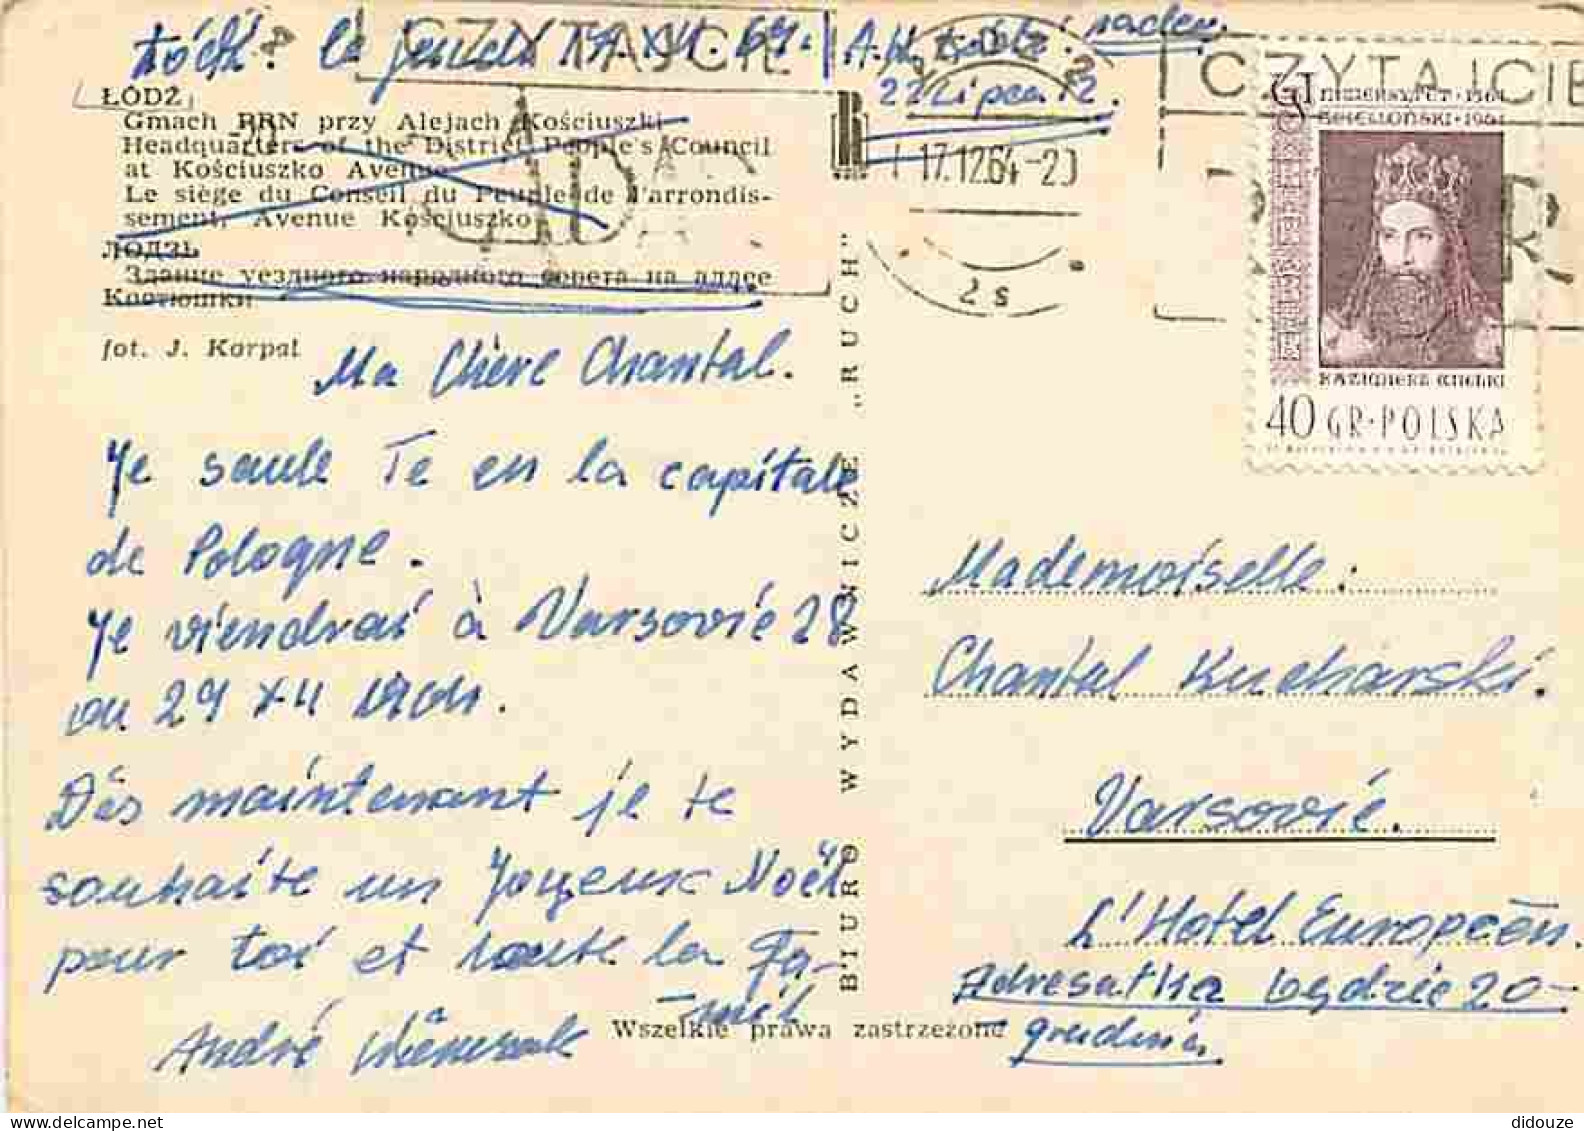 Łódź. le jeudi 17.XII.64.
A.
nadev.
22 Lipca 12.
CZYTAJCIE
ŁÓDŹ
Gmach PRN przy Alejach Kościuszki
Headquarters of the District People's Council
at Kościuszko Avenue
Le siège du Conseil du Peuple de l'arrondis-
sement, Avenue Kościuszko
ЛОДЗЬ
Здание уездного народного совета на аллее
Костюшки
fot. J. Karpal
Ma Chère Chantal.
Je saule Te en la capitale
de Pologne.
Je viendrai à Varsovie 28
ou 29 XII
Dès maintenant je te
souhaite un Joyeux Noël
pour toi et toute la Fa-
mil
André
BIURO WYDAWNICZE „RUCH"
Wszelkie prawa zastrzeżone
ŁÓDŹ 2
17.12.64-20
2 s
CZYTAJCIE
KAZIMIERZ WIELKI
40 GR·POLSKA
Mademoiselle:
Chantal Kucharski.
Varsovie.
L'Hotel Européen.
Adresatka będzie 20-
grudnia.
didouze